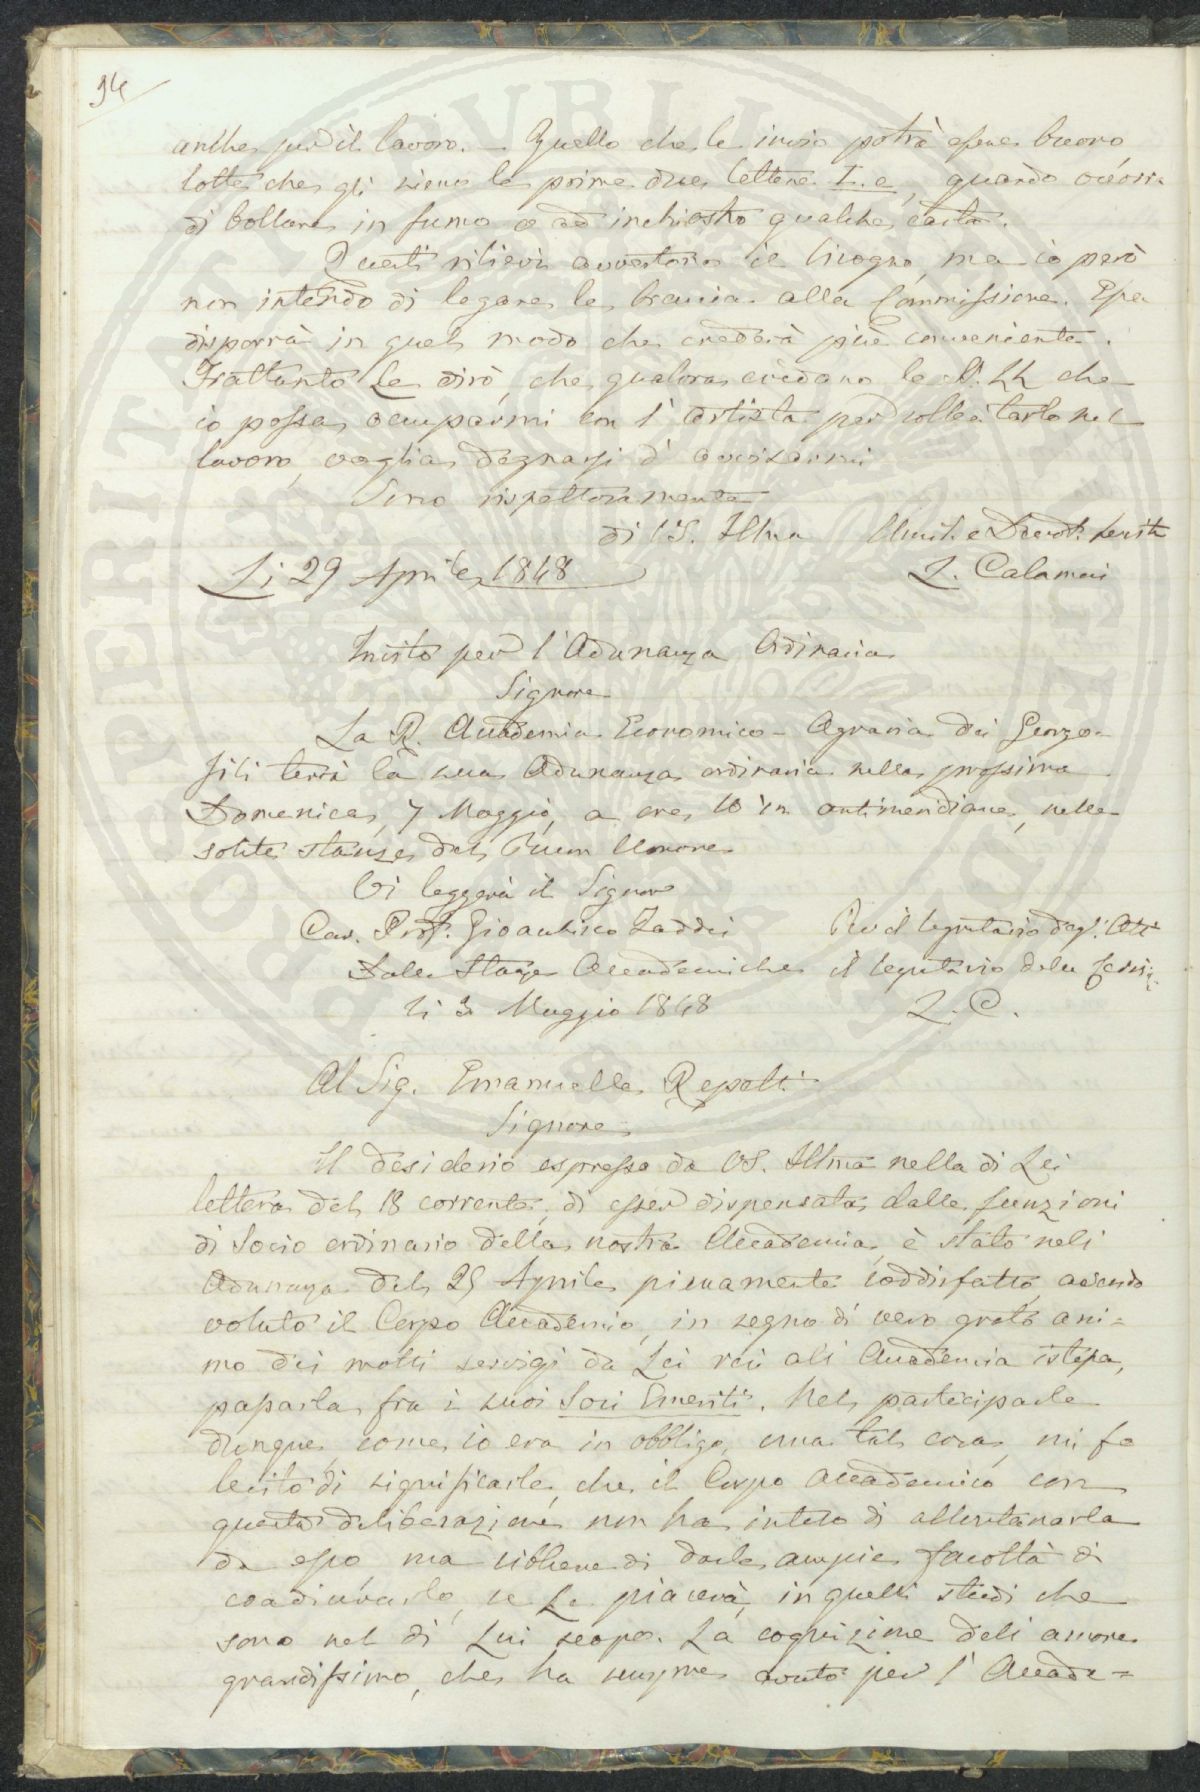 94
anche per il lavoro. — Quello che le invio potrà essere buono
tolte che gli sieno le prime due lettere I. e, quando occorra
di bollare in fumo o ad inchiostro qualche carta.
Questi rilievi avvertono il bisogno, ma io però
non intendo di legare le braccia alla Commissione. Essa
disporrà in quel modo che crederà più conveniente.
Frattanto Le dirò, che qualora credano le LL. che
io possa occuparmi con l'artista per sollecitarlo nel
lavoro, voglia degnarsi d'avvisarmi
Sono rispettosamente
di VS. Illma Umil. e Devot. Servit
Li 29 Aprile 1848 L. Calamai
Invito per l'Adunanza Ordinaria
Signore
La R. Accademia Economico-Agraria dei Georgo-
fili terrà la sua Adunanza ordinaria nella prossima
Domenica, 7 Maggio, a ore 10 ½ antimeridiane, nelle
solite stanze del Buon Umore
Vi leggerà il Signore
Cav. Prof. Gioacchino Taddei Per il Segretario degl'Atti
Dalle Stanze Accademiche il Segretario delle Corris.
li 3 Maggio 1848 L. C.
Al Sig. Emanuelle Repetti
Signore
Il desiderio espresso da VS. Illma nella di Lei
lettera del 18 corrente, di esser dispensata dalle funzioni
di Socio ordinario della nostra Accademia, è stato nell
Adunanza del 25 Aprile pienamente soddisfatto, avendo
voluto il Corpo Accademico, in segno di vero grato ani=
mo dei molti servigi da Lei resi all Accademia istessa,
passarla fra i suoi Soci Emeriti. Nel partecipare
dunque, come io era in obbligo, una tal cosa, mi fo
lecito di significarle, che il Corpo Accademico con
questa deliberazione non ha inteso di allontanarla
da esso, ma sibbene di darle ampie facoltà di
coadiuvarlo, se Le piacerà, in quelli studi che
sono nel di Lui scopo. La cognizione dell amore
grandissimo, che ha sempre avuto per l'Accade=